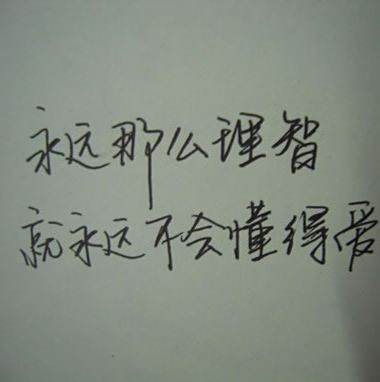 永远那么理智
就永远不会懂得爱